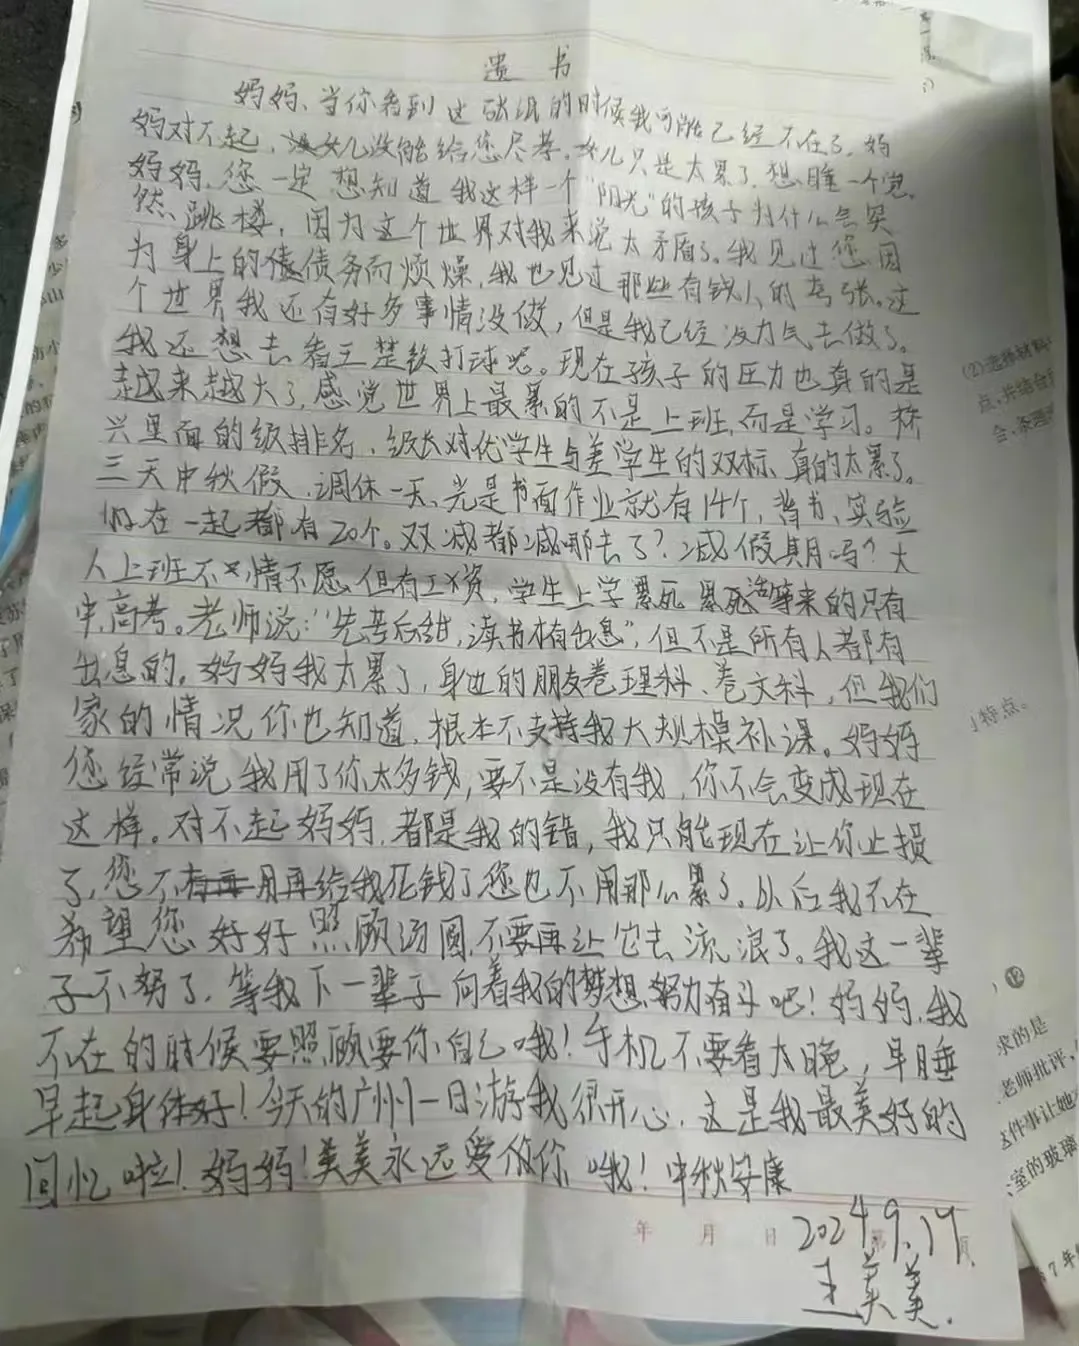 遗 书
妈妈、当你看到这张纸的时候我可能已经不在了，妈
妈对不起，女儿没能给您尽孝，女儿只是太累了，想睡一个觉，
妈妈，您一定想知道我这样一个"阳光"的孩子为什么会突
然跳楼，因为这个世界对我来说太矛盾了。我见过您因
为身上的债务而烦燥，我也见过那些有钱人的夸张。这
个世界我还有好多事情没做，但是我已经没力气去做了。
我还想去看王楚钦打球呢。现在孩子的压力也真的是
越来越大了，感觉世界上最累的不是上班，而是学习。
兴里面的级排名、级长对优学生与差学生的双标、真的太累了。
三天中秋假，调休一天，光是书面作业就有14个，背书、实验
在一起都有20个。双减都减哪去了？减假期吗？大
人上班不情不愿，但有工资，学生上学累死累死等来的只有
中，高考。老师说："先苦后甜，读书才有出息"，但不是所有人都有
出息的。妈妈我太累了，身边的朋友卷理科、卷文科，但我们
家的情况你也知道，根本不支持我大规模补课。妈妈
您经常说我用了你太多钱，要不是没有我，你不会变成现在
这样。对不起妈妈，都是我的错，我只能现在让你止损
了，您不用再给我花钱了您也不用那么累了。以后我不在
希望您好好照顾汤圆，不要再让它去流浪了。我这一辈
子不努了，等我下一辈子向着我的梦想努力奋斗吧！妈妈，我
不在的时候要照顾要你自己哦！手机不要看太晚，早睡
早起身体好！今天的广州一日游我很开心，这是我最美好的
回忆啦！妈妈！美美永远爱你哦！中秋安康
年 月 日 第 页
2024.9.17
王美美.
(2)选择材料
点，并结合
特点。
求的是
老师批评，
这件事让她
室的玻璃